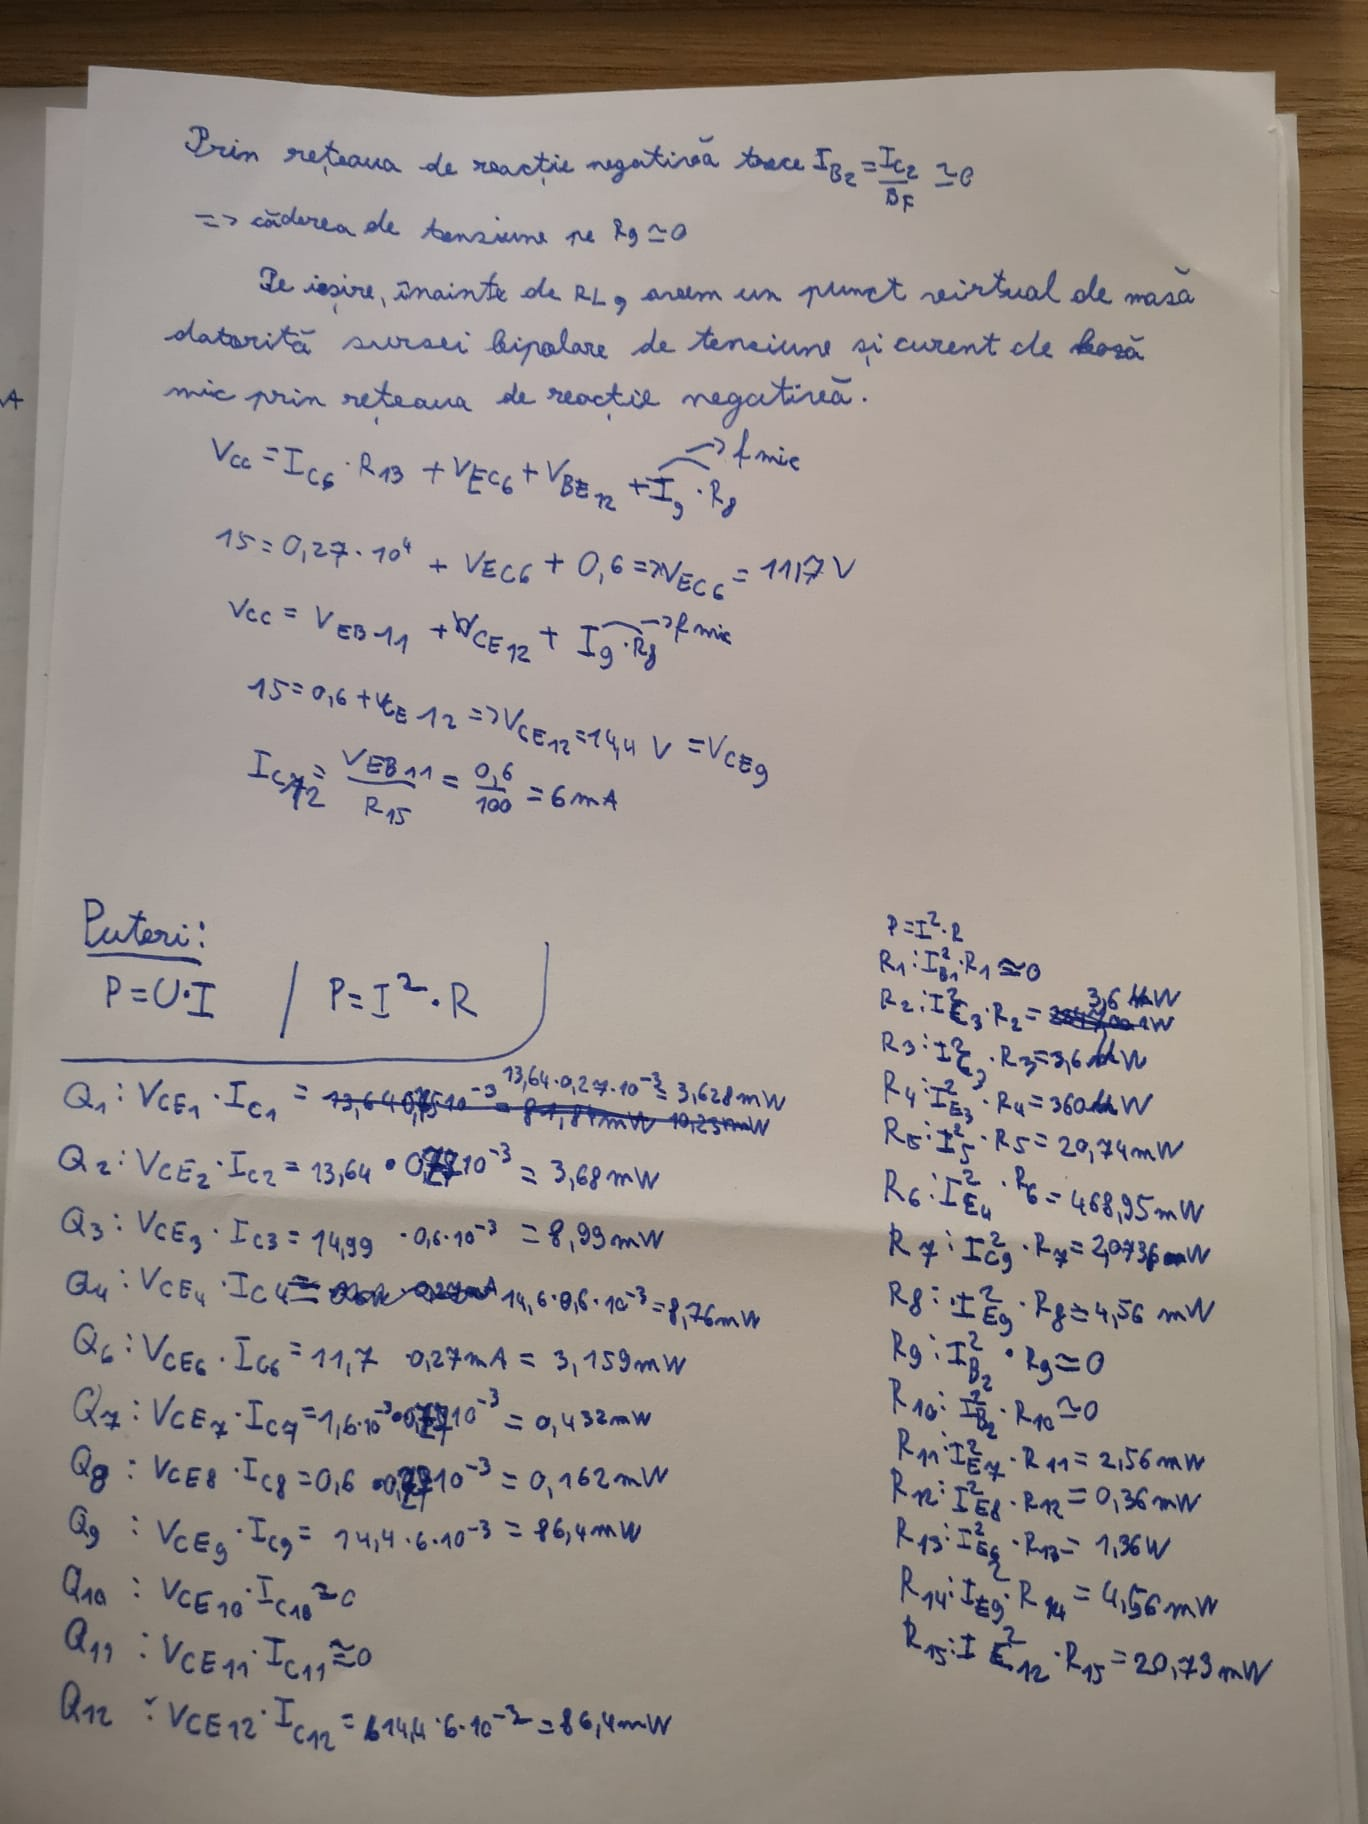 Prin rețeaua de reacție negativă trece I_B2 = I_C2 / B_F ≃ 0
=> căderea de tensiune pe R9 ≃ 0
Pe ieșire, înainte de RL, avem un punct virtual de masă
datorită sursei bipolare de tensiune și curent de bază
mic prin rețeaua de reacție negativă.
V_CC = I_C6 · R13 + V_EC6 + V_BE12 + I_9 · R8 → f mic
15 = 0,27 · 10^4 + V_EC6 + 0,6 => V_EC6 = 11,7 V
V_CC = V_EB11 + V_CE12 + I_9 · R8 → f mic
15 = 0,6 + V_CE12 => V_CE12 = 14,4 V = V_CE9
I_C12 = V_EB11 / R15 = 0,6 / 100 = 6 mA
A
Puteri:
P = U·I / P = I² · R
Q1 : V_CE1 · I_C1 = 13,64 · 0,27 · 10^-3 = 3,628 mW
Q2 : V_CE2 · I_C2 = 13,64 · 0,27 10^-3 = 3,68 mW
Q3 : V_CE3 · I_C3 = 14,99 · 0,6 · 10^-3 = 8,99 mW
Q4 : V_CE4 · I_C4 = 14,6 · 0,6 · 10^-3 = 8,76 mW
Q6 : V_CE6 · I_C6 = 11,7 · 0,27 mA = 3,159 mW
Q7 : V_CE7 · I_C7 = 1,6 · 10^-3 · 0,27 10^-3 = 0,432 mW
Q8 : V_CE8 · I_C8 = 0,6 · 0,27 10^-3 = 0,162 mW
Q9 : V_CE9 · I_C9 = 14,4 · 6 · 10^-3 = 86,4 mW
Q10 : V_CE10 · I_C10 ≃ 0
Q11 : V_CE11 · I_C11 ≅ 0
Q12 : V_CE12 · I_C12 = 14,4 · 6 · 10^-3 = 86,4 mW
P = I² · R
R1 : I²_B1 · R1 ≅ 0
R2 : I²_E3 · R2 = 3,6 W
R3 : · R3 = 3,6 W
R4 : I²_E3 · R4 = 360 W
R5 : I²_5 · R5 = 20,74 mW
R6 : I²_E4 · R6 = 468,95 mW
R7 : I²_C9 · R7 = 2,0736 mW
R8 : I²_E9 · R8 = 4,56 mW
R9 : I²_B2 · R9 ≃ 0
R10 : I²_B2 · R10 ≃ 0
R11 : I²_E7 · R11 = 2,56 mW
R12 : I²_E8 · R12 = 0,36 mW
R13 : I²_E6 · R13 = 1,36 W
R14 : I²_E9 · R14 = 4,56 mW
R15 : I²_E12 · R15 = 20,73 mW